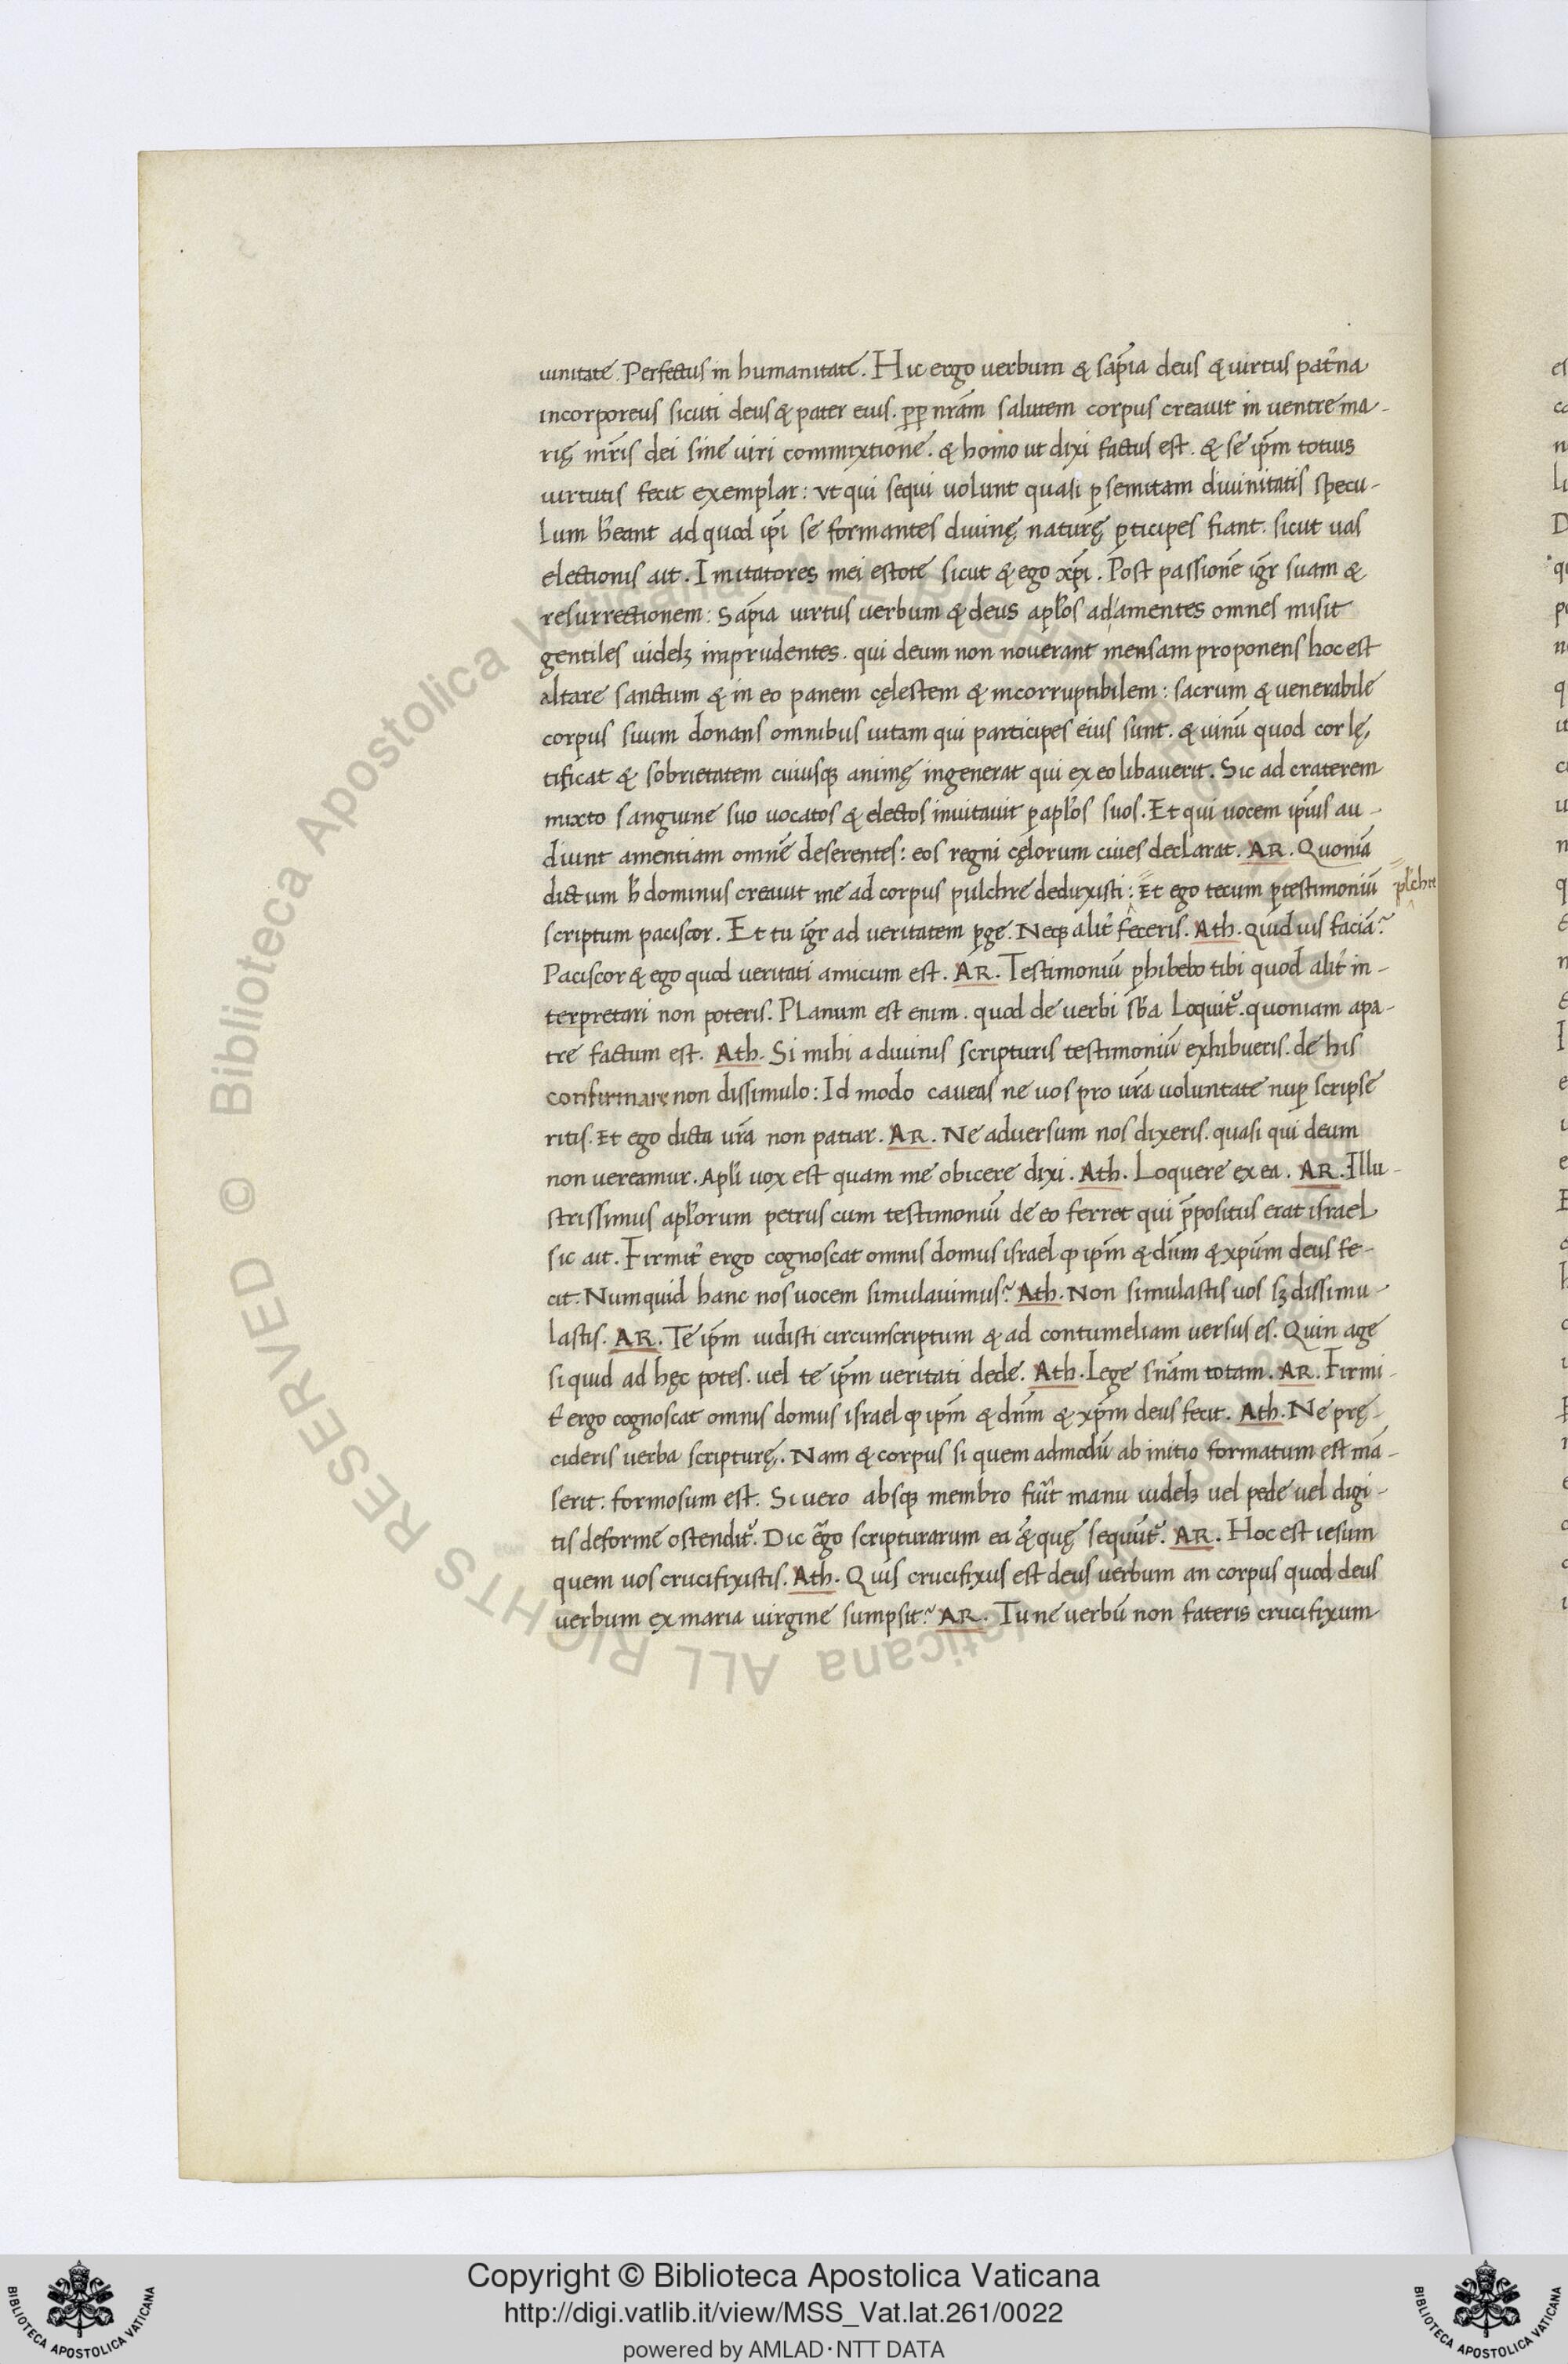 uinitate. Perfectus in humanitate. Hic ergo uerbum & sap̄ia deus & uirtus pat̄na
incorporeus sicuti deus & pater eius. ꝑꝑ nr̄am salutem corpus creauit in uentre ma-
rię mr̄is dei sine uiri commixtione. & homo ut dixi factus est. & se ip̄m totius
uirtutis fecit exemplar: vt qui sequi uolunt quasi ꝑ semitam diuinitatis specu-
lum h̄eant ad quod ip̄i se formantes diuinę naturę ꝑticipes fiant. sicut uas
electionis ait. Imitatores mei estote sicut & ego xp̄i. Post passionē igr̄ suam &
resurrectionem: Sap̄ia uirtus uerbum & deus apl̄os ad amentes omnes misit
gentiles uidelꝫ imprudentes. qui deum non nouerant mensam proponens hoc est
altare sanctum & in eo panem cęlestem & incorruptibilem: sacrum & uenerabile
corpus suum donans omnibus uitam qui participes eius sunt. & uinū quod cor lę,
tificat & sobrietatem cuiusqꝫ animę ingenerat qui ex eo libauerit. Sic ad craterem
mixto sanguine suo uocatos & electos inuitauit ꝑ apl̄os suos. Et qui uocem ip̄ius au-
diunt amentiam omnē deserentes: eos regni cęlorum ciues declarat. AR. Quoniā
dictum h̄ dominus creauit me ad corpus pulchre deduxisti: Et ego tecum ꝑ testimoniū
pl̄chre
scriptum paciscor. Et tu igr̄ ad ueritatem ꝑge. Neqꝫ alit̄ feceris. Ath. Quid uis faciā?
Paciscor & ego quod ueritati amicum est. AR. Testimoniū ꝑhibebo tibi quod alit̄ in-
terpretari non poteris. Planum est enim. quod de uerbi sb̄a Loquit᷑. quoniam a pa-
tre factum est. Ath. Si mihi a diuinis scripturis testimoniū exhibueris. de his
confirmare non dissimulo: Id modo caueas ne uos pro ur̄a uoluntate nuꝑ scripse
ritis. Et ego dicta ur̄a non patiar. AR. Ne aduersum nos dixeris. quasi qui deum
non uereamur. Apl̄i uox est quam me obicere dixi. Ath. Loquere ex ea. AR. Illu-
strissimus apl̄orum petrus cum testimoniū de eo ferret qui p̄positus erat israel
sic ait. Firmit̄ ergo cognoscat omnis domus israel ꝙ ip̄m & dn̄m & xp̄um deus fe-
cit. Numquid hanc nos uocem simulauimus? Ath. Non simulastis uos sꝫ dissimu-
lastis. AR. Te ip̄m uidisti circunscriptum & ad contumeliam uersus es. Quin age
si quid ad hęc potes. uel te ip̄m ueritati dede. Ath. Lege sn̄am totam. AR. Firmi-
t̄ ergo cognoscat omnis domus israel ꝙ ip̄m & dn̄m & xp̄m deus fecit. Ath. Ne prę-
cideris uerba scripturę. Nam & corpus si quem admodū ab initio formatum est mā-
serit: formosum est. Si uero absqꝫ membro fu̅it manu uidelꝫ uel pede uel digi-
tis deforme ostendit᷑. Dic ergo scripturarum ea & quę sequūt᷑. AR. Hoc est iesum
quem uos crucifixistis. Ath. Quis crucifixus est deus uerbum an corpus quod deus
uerbum ex maria uirgine sumpsit? AR. Tu ne uerbū non fateris crucifixum
© Biblioteca Apostolica Vaticana ALL RIGHTS RESERVED
Copyright © Biblioteca Apostolica Vaticana
http://digi.vatlib.it/view/MSS_Vat.lat.261/0022
powered by AMLAD·NTT DATA
BIBLIOTECA APOSTOLICA VATICANA
BIBLIOTECA APOSTOLICA VATICANA